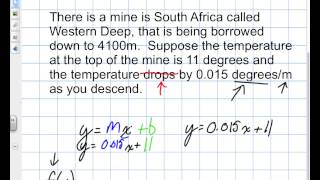 There is a mine is South Africa called
Western Deep, that is being borrowed
down to 4100m. Suppose the temperature
at the top of the mine is 11 degrees and
the temperature drops by 0.015 degrees/m
as you descend.
y = mx + b y = 0.015x + 11
y = 0.015x + 11